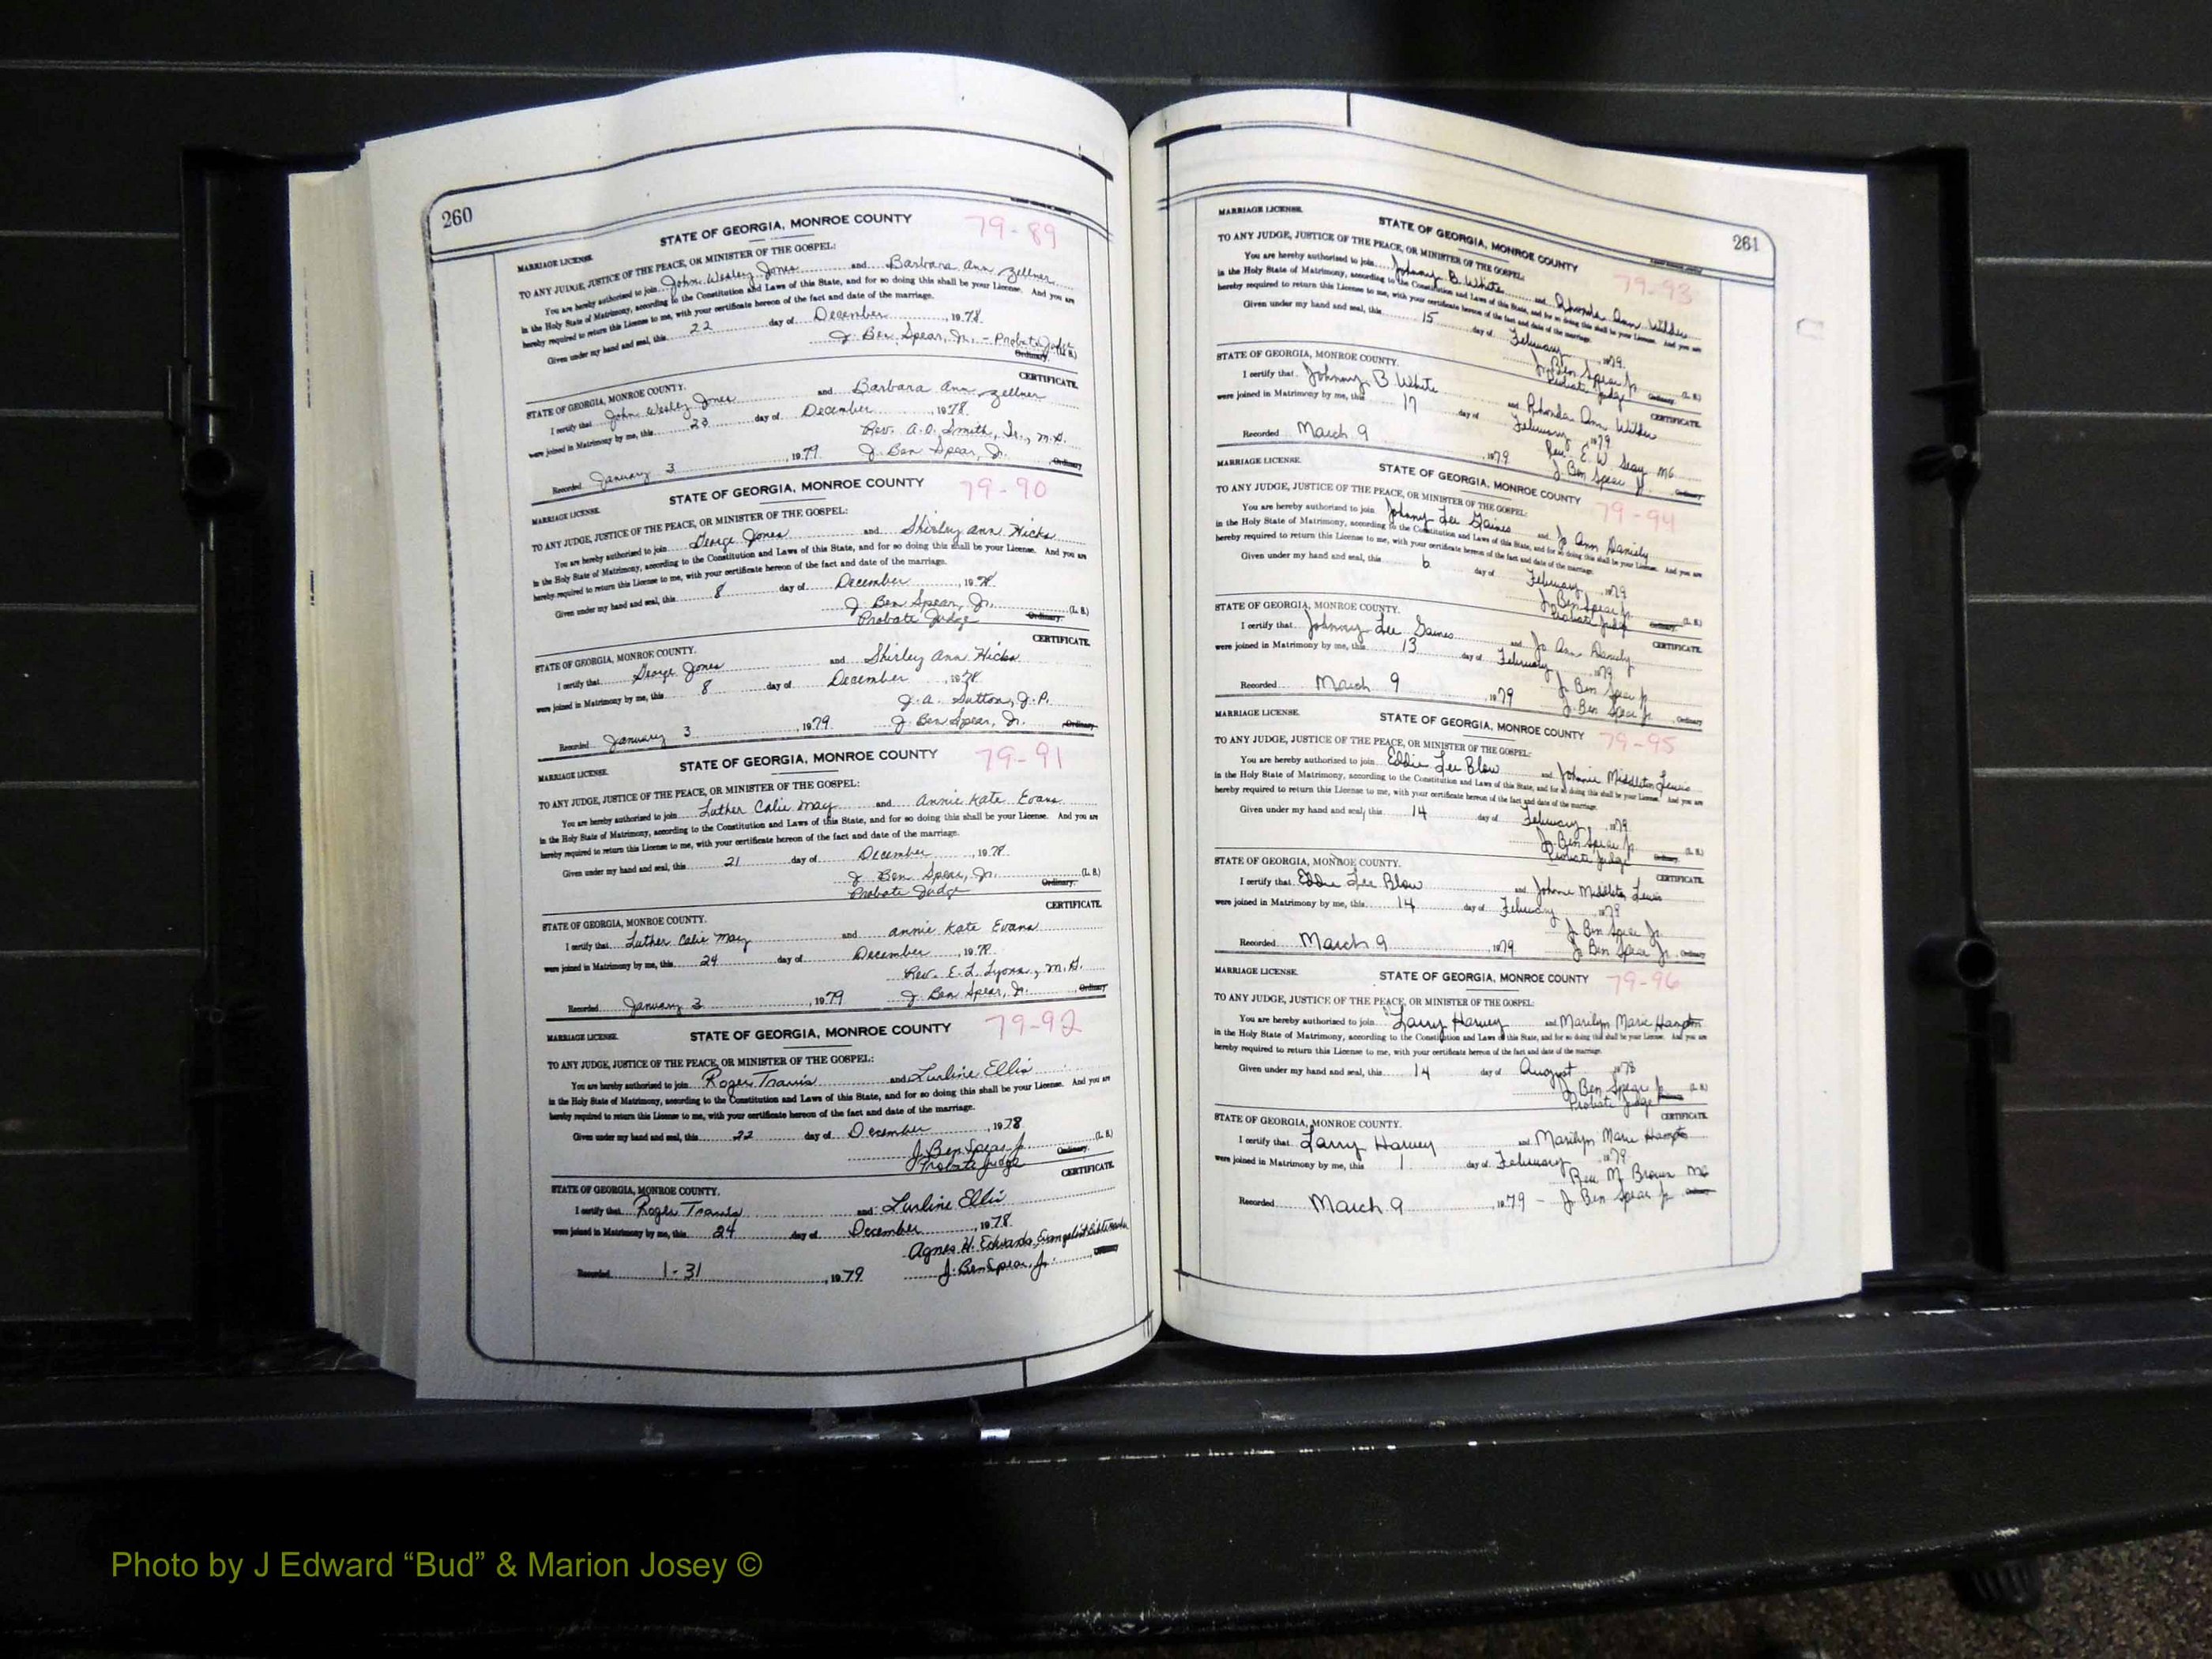 260
STATE OF GEORGIA, MONROE COUNTY 79-89
MARRIAGE LICENSE.
TO ANY JUDGE, JUSTICE OF THE PEACE, OR MINISTER OF THE GOSPEL:
You are hereby authorized to join John Wesley Jones and Barbara Ann Zellner
in the Holy State of Matrimony, according to the Constitution and Laws of this State, and for so doing this shall be your License. And you are
hereby required to return this License to me, with your certificate hereon of the fact and date of the marriage.
Given under my hand and seal, this 22 day of December, 1978
J. Ben Spear, Jr. - Probate Judge
Ordinary. (L. S.)
CERTIFICATE.
STATE OF GEORGIA, MONROE COUNTY.
I certify that John Wesley Jones and Barbara Ann Zellner
were joined in Matrimony by me, this 23 day of December, 1978
Rev. A.O. Smith, Sr., M.G.
Recorded January 3, 1979 J. Ben Spear, Jr. Ordinary
STATE OF GEORGIA, MONROE COUNTY 79-90
MARRIAGE LICENSE.
TO ANY JUDGE, JUSTICE OF THE PEACE, OR MINISTER OF THE GOSPEL:
You are hereby authorized to join George Jones and Shirley Ann Hicks
in the Holy State of Matrimony, according to the Constitution and Laws of this State, and for so doing this shall be your License. And you are
hereby required to return this License to me, with your certificate hereon of the fact and date of the marriage.
Given under my hand and seal, this 8 day of December, 1978
J. Ben Spear, Jr. (L. S.)
Probate Judge Ordinary.
CERTIFICATE.
STATE OF GEORGIA, MONROE COUNTY.
I certify that George Jones and Shirley Ann Hicks
were joined in Matrimony by me, this 8 day of December, 1978
J. A. Sutton, J.P.
Recorded January 3, 1979 J. Ben Spear, Jr. Ordinary
STATE OF GEORGIA, MONROE COUNTY 79-91
MARRIAGE LICENSE.
TO ANY JUDGE, JUSTICE OF THE PEACE, OR MINISTER OF THE GOSPEL:
You are hereby authorized to join Luther Calie May and Annie Kate Evans
in the Holy State of Matrimony, according to the Constitution and Laws of this State, and for so doing this shall be your License. And you are
hereby required to return this License to me, with your certificate hereon of the fact and date of the marriage.
Given under my hand and seal, this 21 day of December, 1978
J. Ben Spear, Jr. (L. S.)
Probate Judge Ordinary.
CERTIFICATE.
STATE OF GEORGIA, MONROE COUNTY.
I certify that Luther Calie May and Annie Kate Evans
were joined in Matrimony by me, this 24 day of December, 1978
Rev. E. L. Lyons, M.G.
Recorded January 3, 1979 J. Ben Spear, Jr. Ordinary
STATE OF GEORGIA, MONROE COUNTY 79-92
MARRIAGE LICENSE.
TO ANY JUDGE, JUSTICE OF THE PEACE, OR MINISTER OF THE GOSPEL:
You are hereby authorized to join Roger Travis and Lurline Ellis
in the Holy State of Matrimony, according to the Constitution and Laws of this State, and for so doing this shall be your License. And you are
hereby required to return this License to me, with your certificate hereon of the fact and date of the marriage.
Given under my hand and seal, this 22 day of December, 1978
J. Ben Spear Jr. (L. S.)
Probate Judge Ordinary.
CERTIFICATE.
STATE OF GEORGIA, MONROE COUNTY.
I certify that Roger Travis and Lurline Ellis
were joined in Matrimony by me, this 24 day of December, 1978
Agnes H. Edwards, Evangelist
Recorded 1-31, 1979 J. Ben Spear, Jr. Ordinary
261
MARRIAGE LICENSE.
STATE OF GEORGIA, MONROE COUNTY 79-93
TO ANY JUDGE, JUSTICE OF THE PEACE, OR MINISTER OF THE GOSPEL:
You are hereby authorized to join Johnny B. White and Rhonda Ann Wilder
in the Holy State of Matrimony, according to the Constitution and Laws of this State, and for so doing this shall be your License. And you are
hereby required to return this License to me, with your certificate hereon of the fact and date of the marriage.
Given under my hand and seal, this 15 day of February, 1979
J. Ben Spear Jr. (L. S.)
Probate Judge Ordinary.
CERTIFICATE.
STATE OF GEORGIA, MONROE COUNTY.
I certify that Johnny B White and Rhonda Ann Wilder
were joined in Matrimony by me, this 17 day of February, 1979
Rev. E. W. Seay MG
Recorded March 9, 1979 J. Ben Spear Jr. Ordinary
MARRIAGE LICENSE.
STATE OF GEORGIA, MONROE COUNTY 79-94
TO ANY JUDGE, JUSTICE OF THE PEACE, OR MINISTER OF THE GOSPEL:
You are hereby authorized to join Johnny Lee Gaines and Jo Ann Daniely
in the Holy State of Matrimony, according to the Constitution and Laws of this State, and for so doing this shall be your License. And you are
hereby required to return this License to me, with your certificate hereon of the fact and date of the marriage.
Given under my hand and seal, this 6 day of February, 1979
J. Ben Spear Jr. (L. S.)
Probate Judge Ordinary.
CERTIFICATE.
STATE OF GEORGIA, MONROE COUNTY.
I certify that Johnny Lee Gaines and Jo Ann Daniely
were joined in Matrimony by me, this 13 day of February, 1979
J. Ben Spear Jr.
Recorded March 9, 1979 J. Ben Spear Jr. Ordinary
MARRIAGE LICENSE.
STATE OF GEORGIA, MONROE COUNTY 79-95
TO ANY JUDGE, JUSTICE OF THE PEACE, OR MINISTER OF THE GOSPEL:
You are hereby authorized to join Eddie Lee Blow and Johnnie Middleton Lewis
in the Holy State of Matrimony, according to the Constitution and Laws of this State, and for so doing this shall be your License. And you are
hereby required to return this License to me, with your certificate hereon of the fact and date of the marriage.
Given under my hand and seal, this 14 day of February, 1979
J. Ben Spear Jr. (L. S.)
Probate Judge Ordinary.
CERTIFICATE.
STATE OF GEORGIA, MONROE COUNTY.
I certify that Eddie Lee Blow and Johnnie Middleton Lewis
were joined in Matrimony by me, this 14 day of February, 1979
J. Ben Spear Jr.
Recorded March 9, 1979 J. Ben Spear Jr. Ordinary
MARRIAGE LICENSE.
STATE OF GEORGIA, MONROE COUNTY 79-96
TO ANY JUDGE, JUSTICE OF THE PEACE, OR MINISTER OF THE GOSPEL:
You are hereby authorized to join Larry Harvey and Marilyn Marie Hampton
in the Holy State of Matrimony, according to the Constitution and Laws of this State, and for so doing this shall be your License. And you are
hereby required to return this License to me, with your certificate hereon of the fact and date of the marriage.
Given under my hand and seal, this 14 day of August, 1978
J. Ben Spear Jr. (L. S.)
Probate Judge
CERTIFICATE.
STATE OF GEORGIA, MONROE COUNTY.
I certify that Larry Harvey and Marilyn Marie Hampton
were joined in Matrimony by me, this 1 day of February, 1979
Rev M. Brown MG
Recorded March 9, 1979 - J. Ben Spear Jr. Ordinary
Photo by J Edward “Bud” & Marion Josey ©